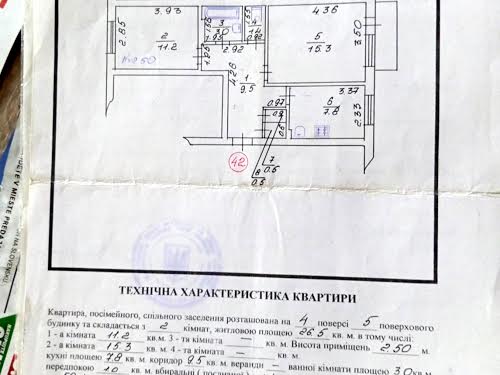 3.93
4.36
2.85
2
11.2
h=2.50
1.55
3
3.0
1.95
1.55
4
1.4
0.92
2.92
1.25
4.26
1
9.5
5
15.3
3.50
3.37
6
7.8
2.33
0.97
0.6
42
7
0.6
8
0.6
ТЕХНІЧНА ХАРАКТЕРИСТИКА КВАРТИРИ
Квартира, посімейного, спільного заселення розташована на 4 поверсі 5 поверхового
будинку та складається з 2 кімнат, житловою площею 26.5 кв. м. в тому числі:
1 - а кімната 11.2 кв.м. 3 - тя кімната — кв. м. Висота приміщень 2.50 м.
2 - а кімната 15.3 кв. м. 4 - та кімната — кв. м
кухні площею 7.8 кв.м. коридор 9.5 кв.м. веранди — ванної кімнати площею 3.0 кв.м
передпокою 1.0 кв.м. вбиральні
ĆTE V MIESTE PREDAJ
NA SLOVENSKU